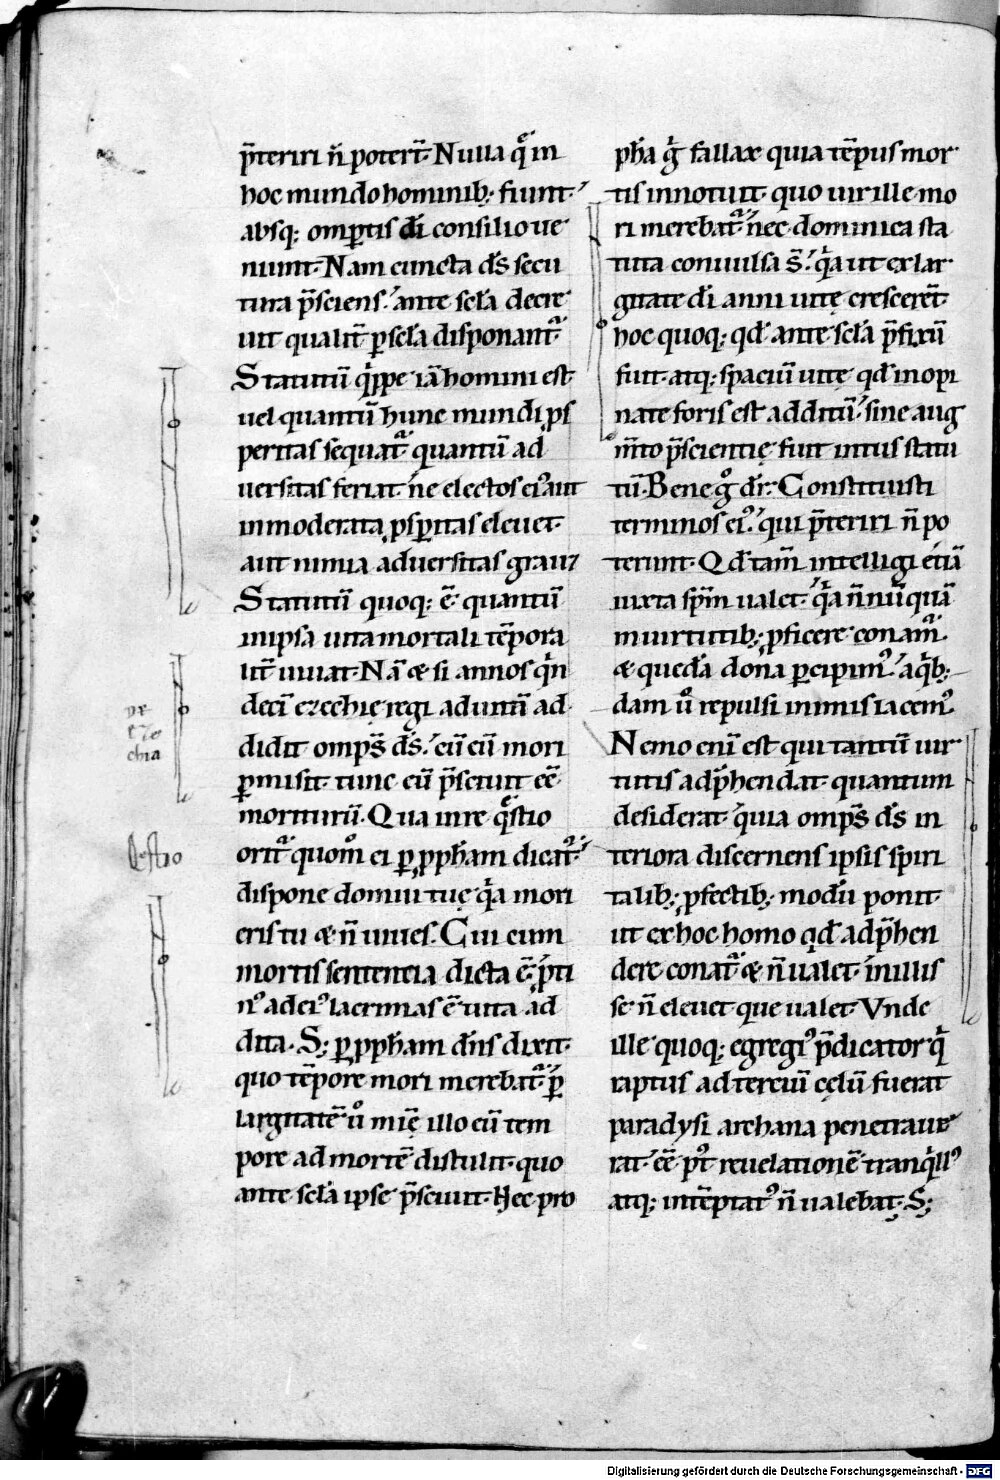 p̄teriri n̄ potert̄. Nulla q̊ in
hoc mundo hominib; fiunt.
absq; omp̄tis dī consilio ue
niunt. Nam cuncta d̄s secu
tura p̄sciens. ante scl̄a decre
uit qualit̄ p̱ scl̄a disponant᷑.
Statutū q̍ppe iā homini est
uel quantū hunc mundi ꝓs
peritas sequat᷑. quantū ad
uersitas feriat. ne electos eiꝰ aut
inmoderata ꝓsꝑitas eleuet.
aut nimia aduersitas grauꝫ
Statutū quoq; ē. quantū
in ipsa uita mortali tēpora
lit̄ uiuat. Nā & si annos q̍n
decī ezechię regi ad uitā ad
didit omp̄s d̄s. cū eū mori
ꝑmisit. tunc eū p̄sciuit eē
moriturū. Qua in re q̄stio
orit᷑ quom̊ ei ꝑ ꝓph̄am dicat᷑.
dispone domui tuę q̍a mori
eris tu & n̄ uiues. Cui cum
mortis sententia dicta ē. p̍ti
nꝰ ad eiꝰ lacrimas ē uita ad
dita. S; ꝑ ꝓph̄am dn̄s dixit.
quo tēpore mori merebat᷑. ꝑ
largitatē ů mīę illo eū tem
pore ad mortē distulit. quo
ante scl̄a ipse p̄sciuit. Nec pro
ph̄a g̍ fallax quia tēpus mor
tis innotuit. quo uir ille mo
ri merebat᷑. nec dominica sta
tuta conuulsa s̄. q̍a ut ex lar
gitate dī anni uitę crescerēt.
hoc quoq; qd̄ ante scl̄a p̄fixū
fuit. atq; spaciū uitę qd̄ inopi
nate foris est additū. sine aug
m̄to p̄scientię fuit intus statu
tū. Bene g̊ dr̄. Constituisti
terminos eiꝰ. qui p̄teriri n̄ po
terunt. Qd̄ tam̄ intelligi etiā
iuxta sp̄m ualet. q̍a n̄nūquā
in uirtutib; ꝓficere conam᷑.
& quedā dona percipimꝰ. a q̍b;
dam ů repulsi in imis iacemꝰ.
Nemo enī est qui tantū uir
tutis ad p̄hendat. quantum
desiderat. quia omp̄s d̄s in
teriora discernens ipsis spiri
talib; ꝓfectib; modū ponit.
ut ex hoc homo qd̄ adp̄hen
dere conat᷑ & n̄ ualet. in illis
se n̄ eleuet que ualet. Vnde
ille quoq; egregiꝰ p̄dicator q̍
raptus ad terciū cęlū fuerat
paradysi archana penetraue
rat. eē p̄t reuelationē tranq̍llꝰ
atq; intēptatꝰ n̄ ualebat. S;
de
eze
chia
Q̄stio
Digitalisierung gefördert durch die Deutsche Forschungsgemeinschaft - DFG